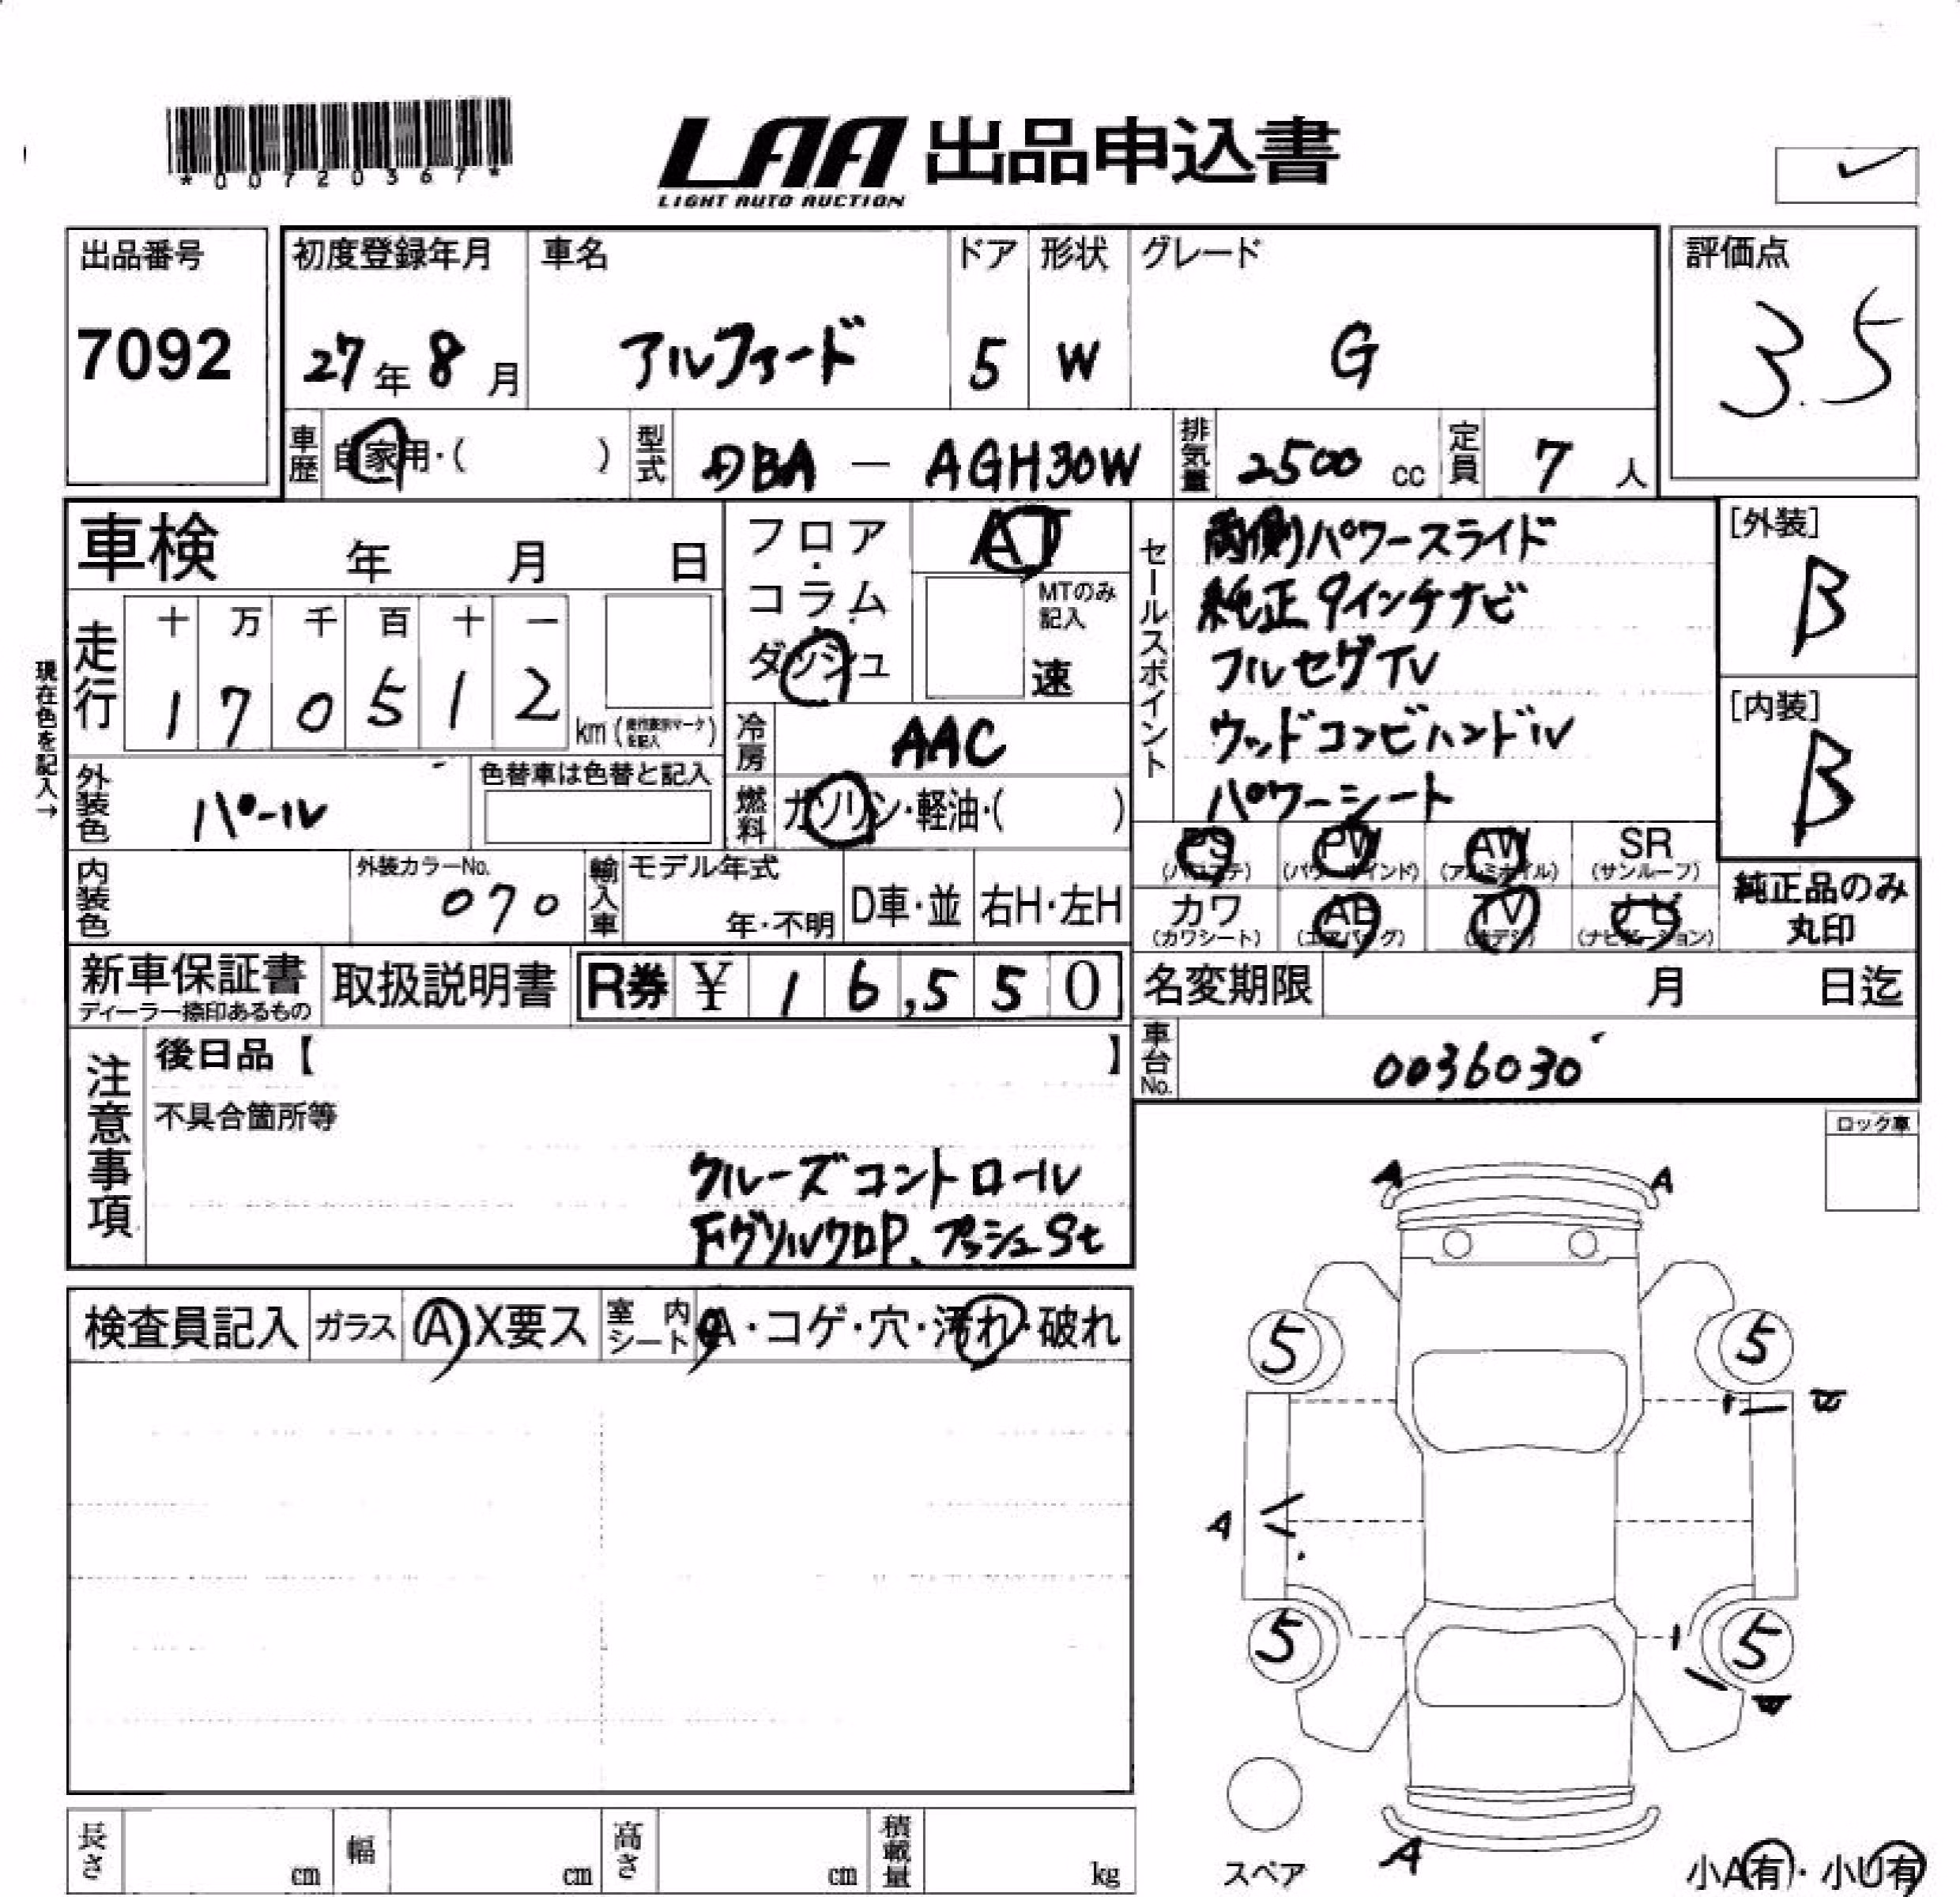 *00720367*
LAA 出品申込書
LIGHT AUTO AUCTION
出品番号
7092
初度登録年月
27年 8月
車名
アルファード
ドア
5
形状
W
グレード
G
評価点
3.5
車歴
自家用・( )
型式
DBA — AGH30W
排気量
2500 cc
定員
7 人
車検 年 月 日
フロア
コラム
ダッシュ
AT
MTのみ
記入
速
セールスポイント
両側パワースライド
純正9インチナビ
フルセグTV
ウッドコンビハンドル
パワーシート
[外装]
B
[内装]
B
現在色を記入→
走行
十 万 千 百 十 一
1 7 0 5 1 2
km (走行表示マークを記入)
冷房
AAC
外装色
パール
色替車は色替と記入
燃料
ガソリン・軽油・( )
PS (パワステ)
PW (パワーウインド)
AW (アルミホイル)
SR (サンルーフ)
カワ (カワシート)
AB (エアバッグ)
TV
ナビ (ナビゲーション)
純正品のみ
丸印
内装色
外装カラーNo.
070
輸入車
モデル年式
年・不明
D車・並
右H・左H
新車保証書
ディーラー捺印あるもの
取扱説明書
R券 ¥ 16,550
名変期限 月 日迄
車台No.
0036030
注意事項
後日品【 】
不具合箇所等
クルーズコントロール
FグリルクロP、プッシュSt
ロック車
検査員記入
ガラス
A X要ス
室内
シート
A・コゲ・穴・汚れ・破れ
A A
5 5
A
5 5
A
スペア
小A有・小U有
長さ cm
幅 cm
高さ cm
積載量 kg